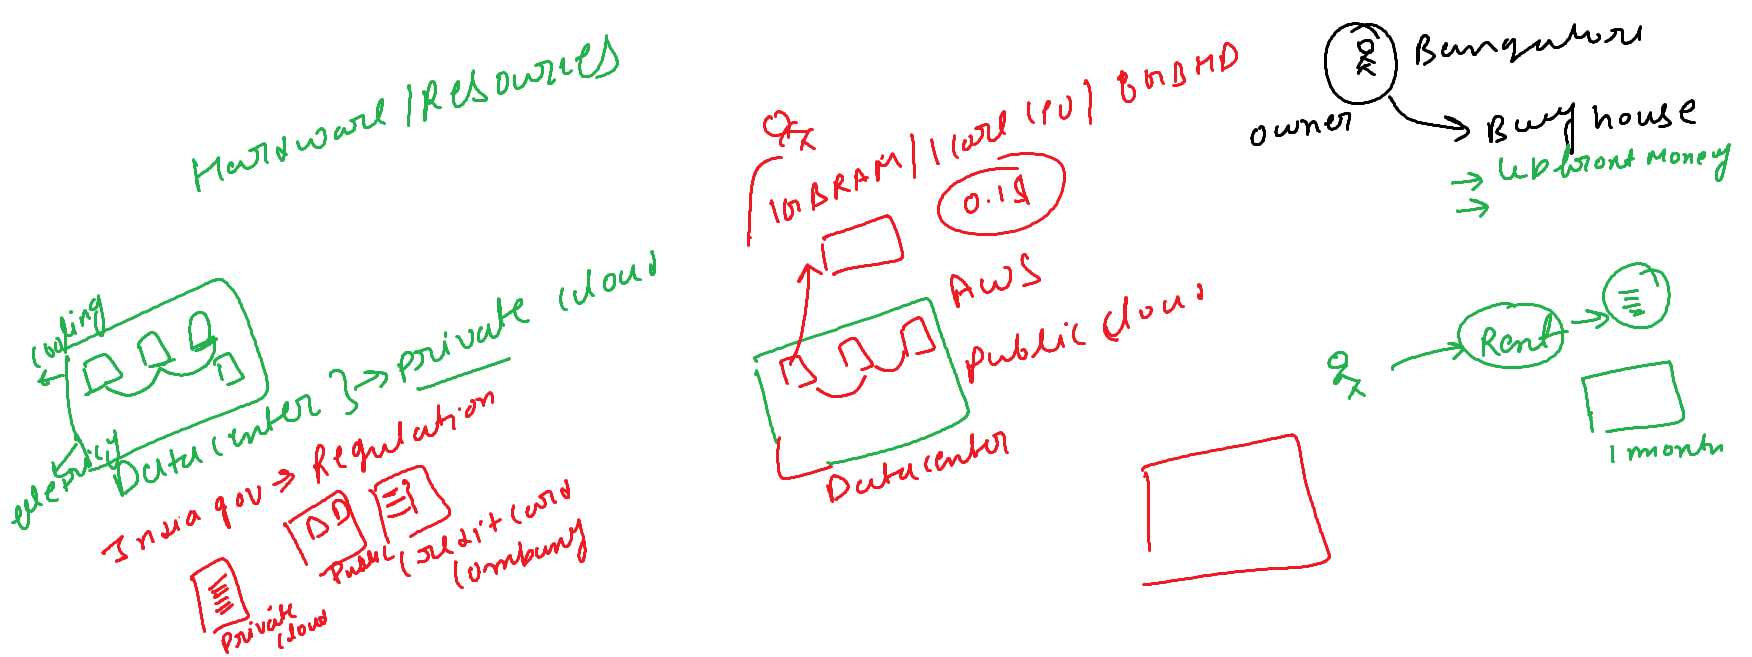 Hardware/Resources
cooling
electricity
Datacenter } → private cloud
India gov → Regulation
Public
Credit card
company
private
cloud
1GBRAM/1core CPU/8GBHD
0.1$
AWS
public cloud
Datacenter
Bangalore
owner
Buy house
→ Upfront Money
→
Rent
1 month